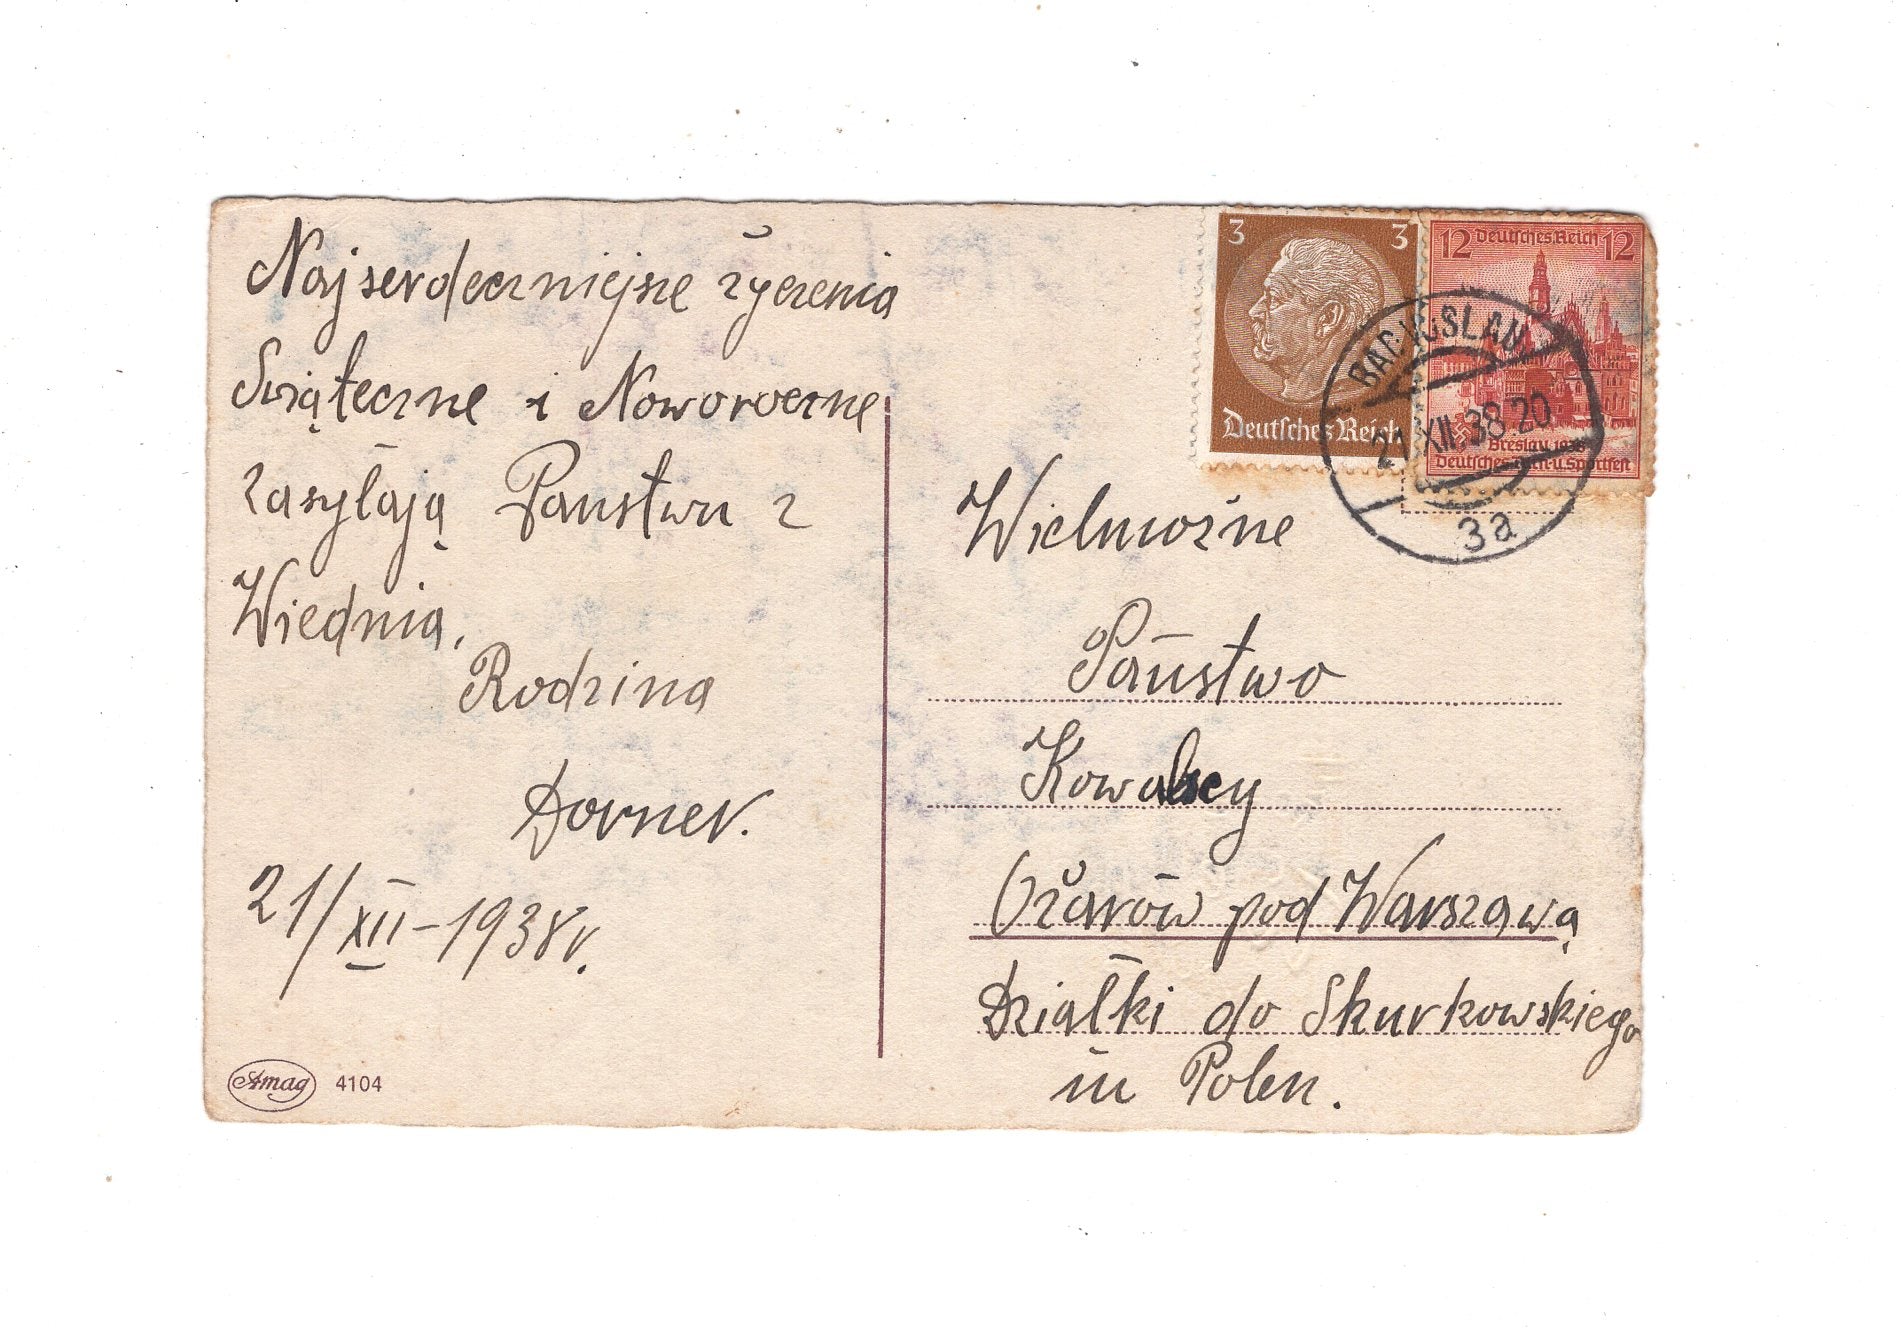 Najserdeczniejsze życzenia
Swiąteczne i Noworoczne
zasyłają Państwu z
Wiednia,
Rodzina
Dorner.
21/XII-1938r.
Amag 4104
3 3
Deutsches Reich
12 Deutsches Reich 12
Breslau 1938
Deutsches Turn- u. Sportfest
BAD VÖSLAU
21.XII.38.20
3a
Wielmożne
Państwo
Kowalscy
Ożarów pod Warszawą
Działki do Skurkowskiego
in Polen.